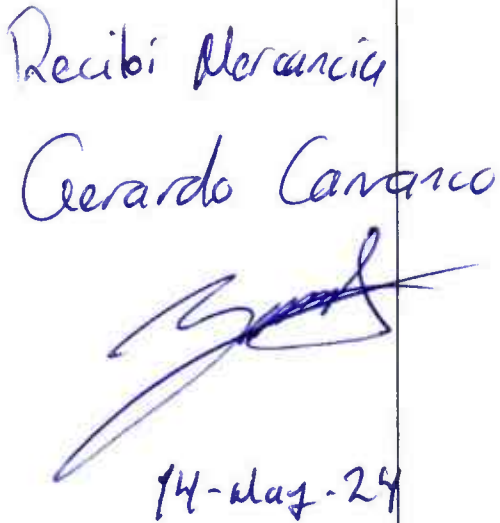 Recibi Mercancia
Gerardo Carrasco
14-May-24